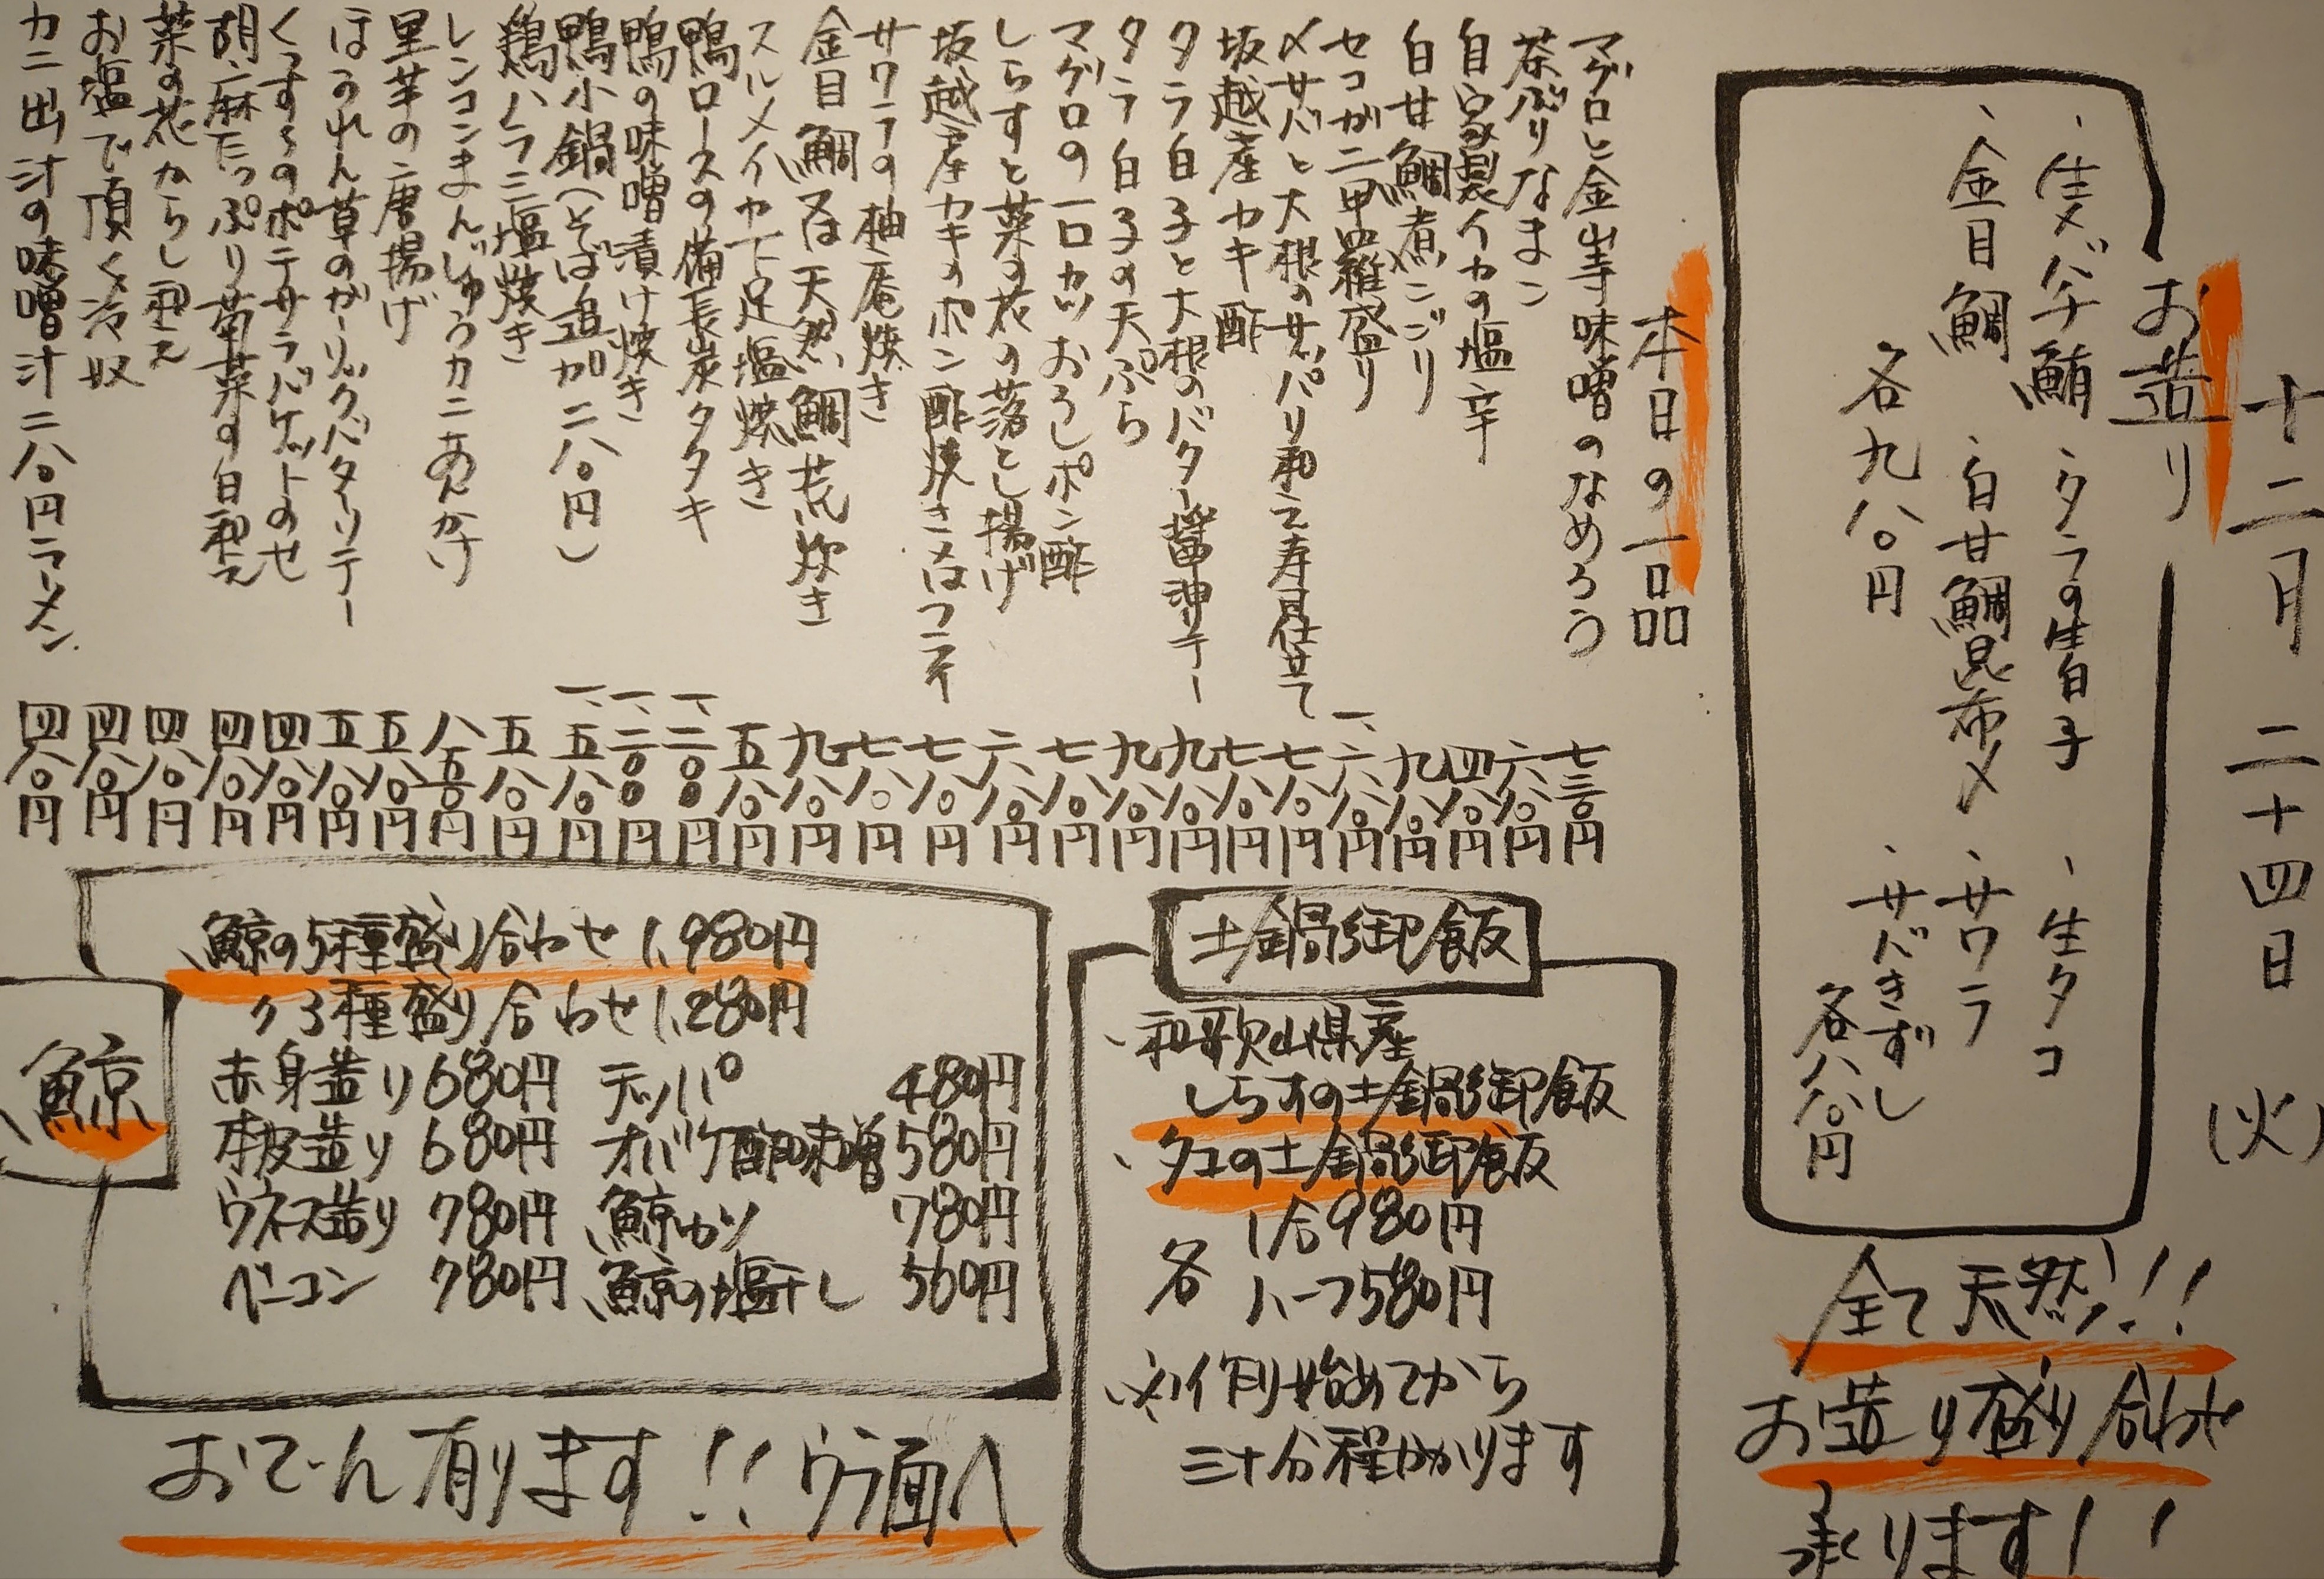 十二月二十四日(火)
お造り
・生メバチ鮪 ・タラの生白子 ・生タコ
・金目鯛 ・白甘鯛昆布〆 ・サワラ
・サバきずし
各九八〇円
各八八〇円
全て天然!!
お造り盛り合わせ
承ります!!
本日の一品
マグロと金山寺味噌のなめろう 七三〇円
茶ぶりなまこ 六八〇円
自家製イカの塩辛 四八〇円
白甘鯛煮こごり 九八〇円
セコガニ甲羅盛り 一、六八〇円
〆サバと大根のサッパリ和え寿司仕立て 七八〇円
坂越産カキ酢 七八〇円
タラ白子と大根のバター醤油ソテー 九八〇円
タラ白子の天ぷら 九八〇円
マグロの一口カツおろしポン酢 七八〇円
しらすと菜の花の落とし揚げ 六八〇円
坂越産カキのポン酢焼き又はフライ 七八〇円
サワラの柚庵焼き 七八〇円
金目鯛又は天然鯛荒炊き 九八〇円
スルメイカ下足塩焼き 五八〇円
鴨ロースの備長炭タタキ 一、二〇〇円
鴨の味噌漬け焼き 一、二〇〇円
鴨小鍋(そば追加二八〇円) 一、五八〇円
鶏ハラミ塩焼き 五八〇円
レンコンまんじゅうカニあんかけ 八五〇円
里芋の唐揚げ 五八〇円
ほうれん草のガーリックバターソテー 五八〇円
くんすみのポテサラバゲットのせ 四八〇円
胡麻たっぷり菊菜の白和え 四八〇円
菜の花からし和え 四八〇円
お塩で頂く冷奴 四八〇円
カニ出汁の味噌汁二八〇円ラーメン 四八〇円
土鍋御飯
・和歌山県産
しらすの土鍋御飯
・タコの土鍋御飯
各 1合980円
ハーフ580円
※作り始めてから
三十分程かかります
鯨
鯨の5種盛り合わせ 1,980円
〃3種盛り合わせ 1,280円
赤身造り 680円 テッパ 480円
本皮造り 680円 オバケ酢味噌 580円
ウネス造り 780円 鯨カツ 780円
ベーコン 780円 鯨の塩干し 560円
おでん有ります!!ウラ面へ